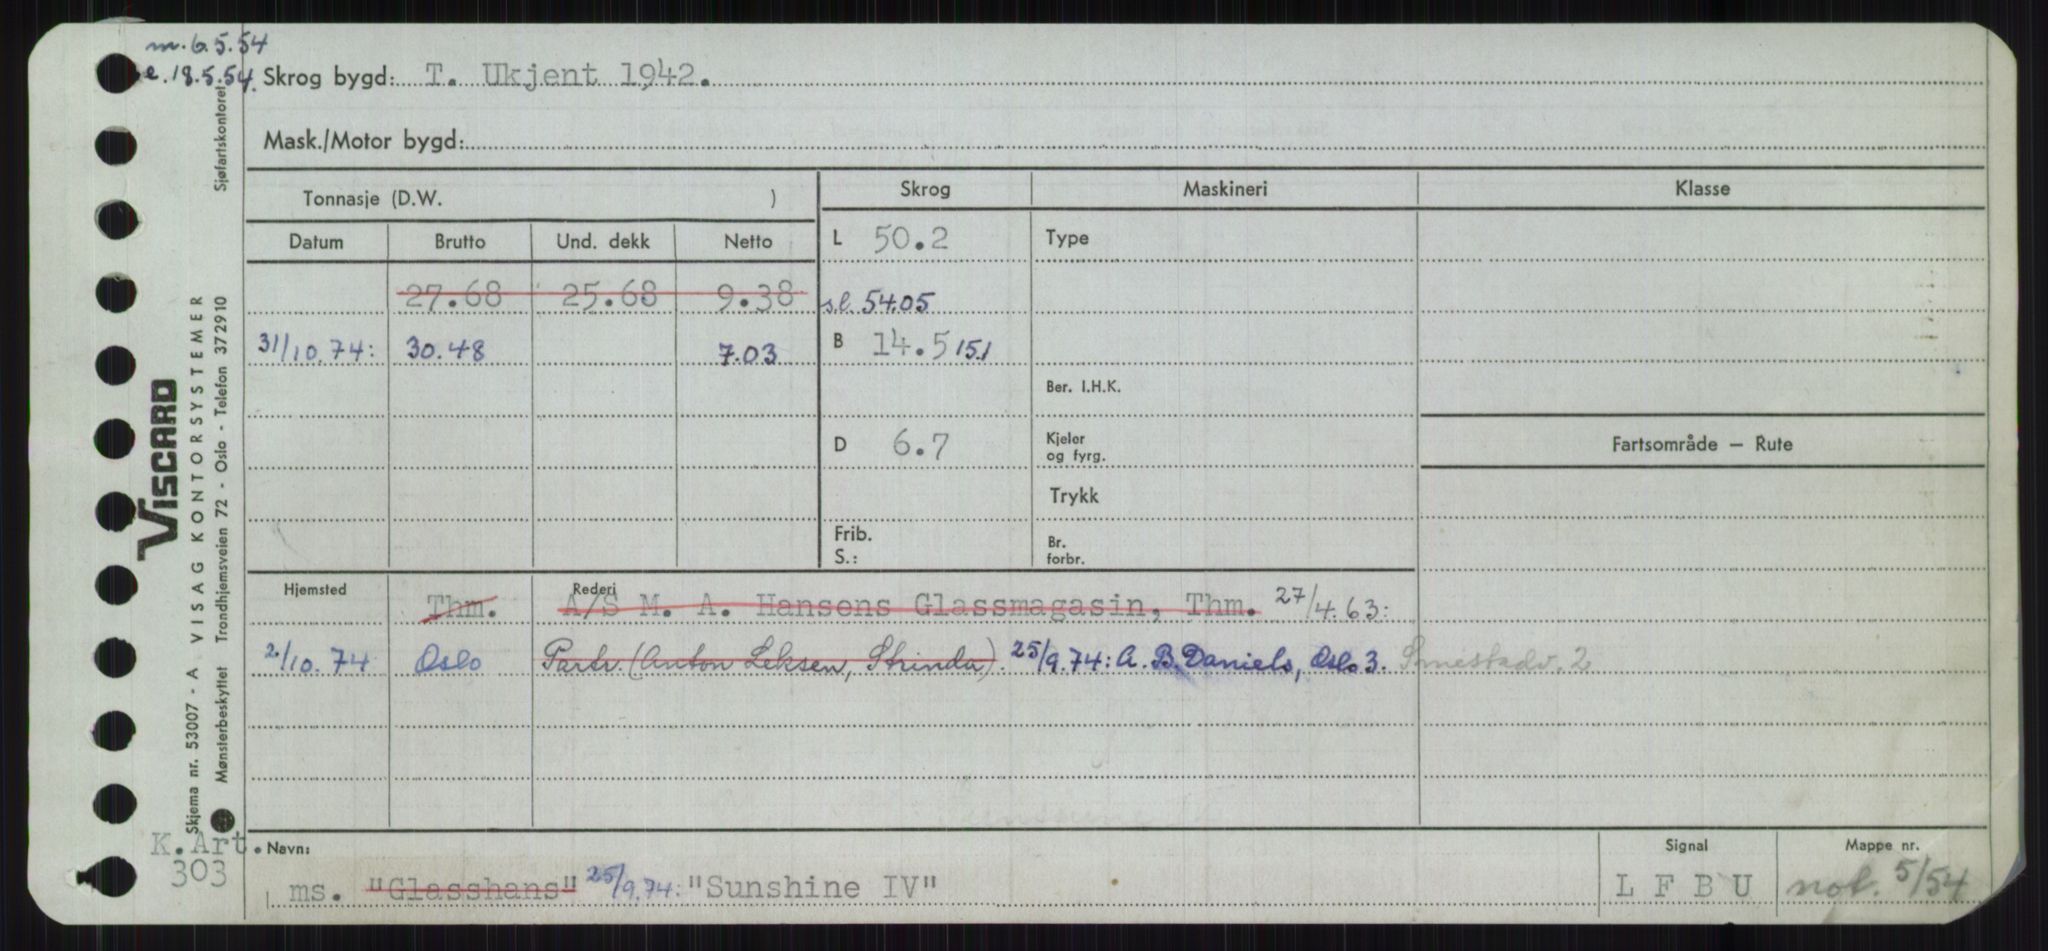 m. 6.5.54
e. 18.5.54.
Skrog bygd: T. Ukjent 1942.
Mask./Motor bygd:
Tonnasje (D.W. )
Skrog
Maskineri
Klasse
Datum Brutto Und. dekk Netto
L 50.2
Type
27.68 25.68 9.38
s.l. 54.05
31/10.74: 30.48 7.03
B 14.5 15.1
Ber. I.H.K.
D 6.7
Kjeler
og fyrg.
Fartsområde — Rute
Trykk
Frib.
S.:
Br.
forbr.
Hjemsted Thm. Rederi A/S M. A. Hansens Glassmagasin, Thm. 27/4.63:
2/10.74 Oslo Partr. (Anton Leksen, Strinda). 25/9.74: A. B. Daniels, Oslo 3. Smestadv. 2
Navn:
Signal
Mappe nr.
ms. "Glasshans" 25/9.74: "Sunshine IV"
L F B U
not. 5/54
K. Art.
303
VISCARD
Skjema nr. 53007 - A VISAG KONTORSYSTEMER
Mønsterbeskyttet Trondhjemsveien 72 - Oslo - Telefon 372910 Sjøfartskontoret